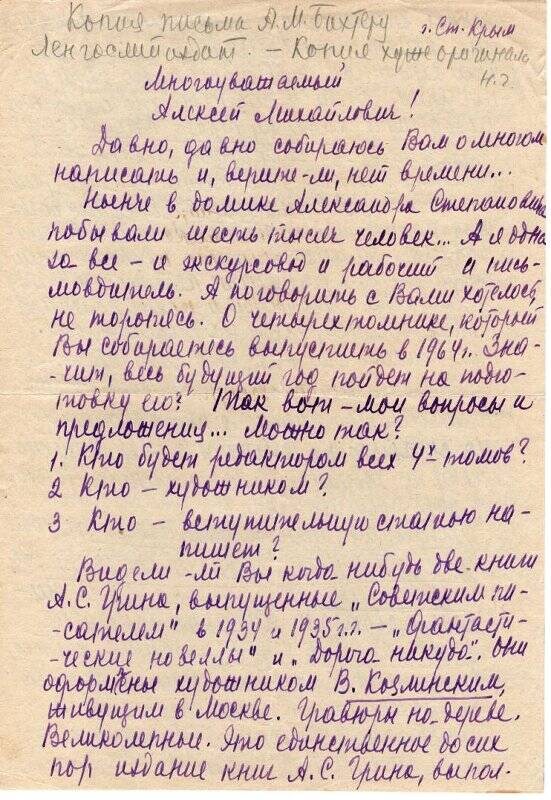 Копия письма А. М. Бихтеру
г. Ст. Крым
Ленгослитиздат. – Копия хуже оригинала
Н. Г.
Многоуважаемый
Алексей Михайлович!
Давно, давно собираюсь Вам о многом
написать и, верите-ли, нет времени...
Нынче в домике Александра Степановича
побывали шесть тысяч человек... А я одна
за все – и экскурсовод и рабочий и пись-
моводитель. А поговорить с Вами хотелось,
не торопясь. О четырехтомнике, который
Вы собираетесь выпустить в 1964г. Зна-
-чит, весь будущий год пойдет на подго-
товку его? Так вот – мои вопросы и
предложения... Можно так?
1. Кто будет редактором всех 4х томов?
2 Кто – художником?
3 Кто – вступительную статью на-
пишет?
Видели-ли Вы когда-нибудь две книги
А.С. Грина, выпущенные „Советским пи-
-сателем" в 1934 и 1935 г.г. – „Фантасти-
-ческие новеллы" и „Дорога никуда". Они
оформлены художником В. Козлинским,
живущим в Москве. Гравюры на дереве.
Великолепные. Это единственное до сих
пор издание книг А.С. Грина, выпол-